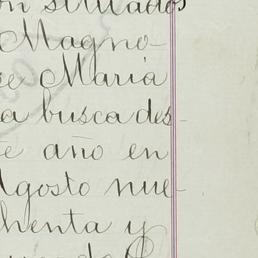 situados
Magno-
de María
a busca des-
te año en
Agosto nue-
henta y